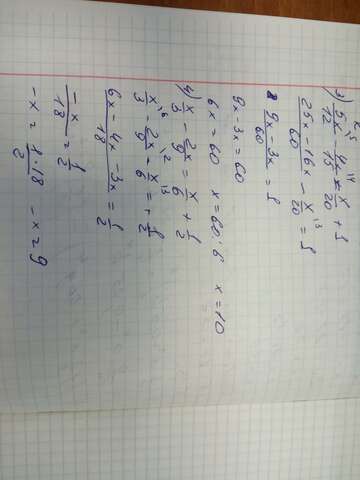 3) 5x/12 - 4x/15 = x/20 + 1
25x + 16x/60 - x/20 = 1
9x - 3x/60 = 1
9x - 3x = 60
6x = 60 x = 60 : 6 x = 10
4) x/3 - 2x/9 = x/6 + 1/2
x/3 - 2x/9 - x/6 = 1/2
6x - 4x - 3x/18 = 1/2
-x/18 = 1/2
-x = 1·18/2 -x = 9